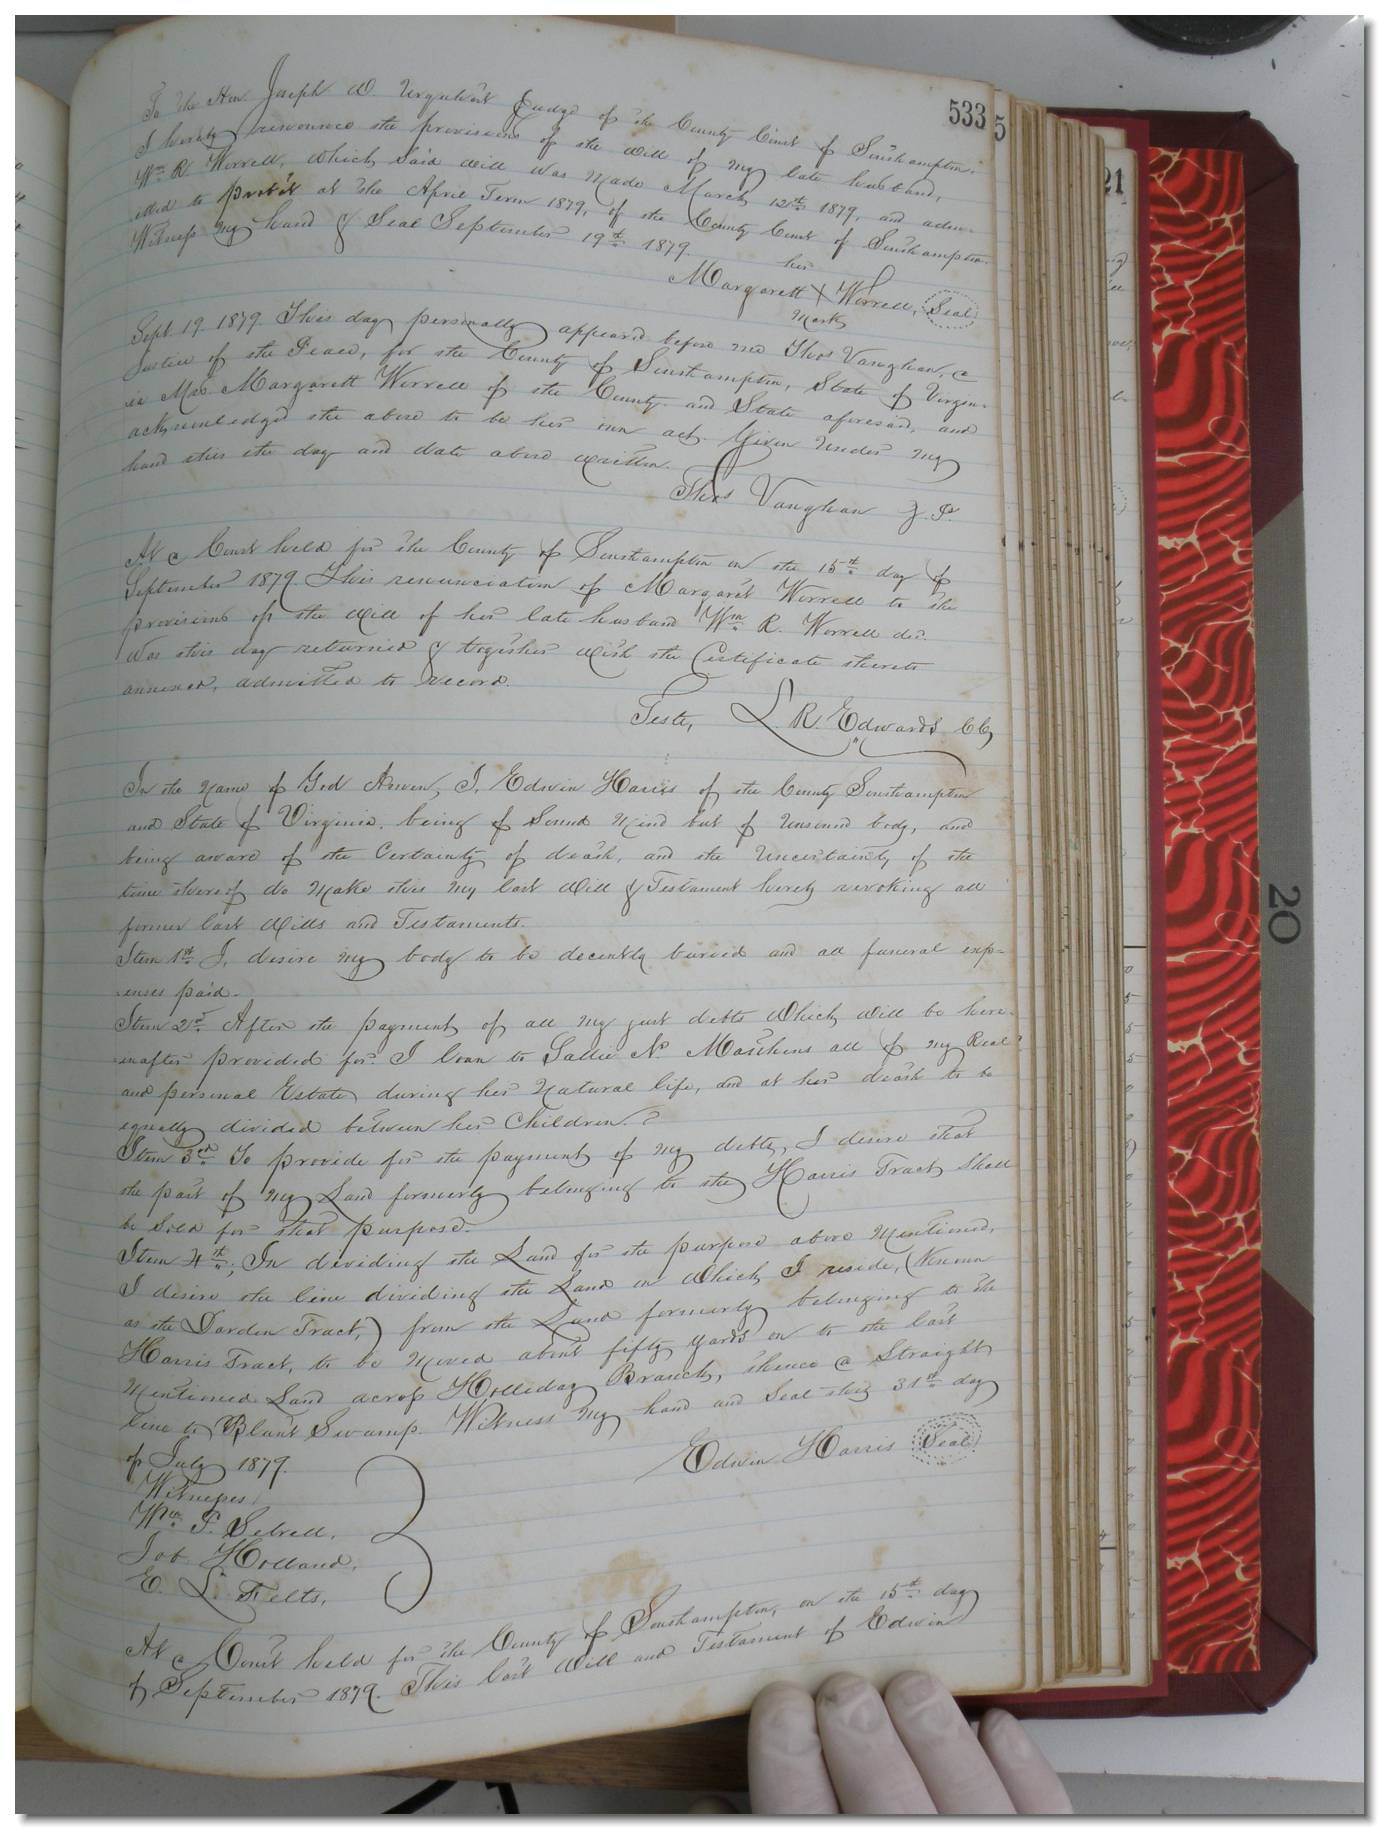 533
5
21
To the Hon. Joseph W. Urquhart Judge of the County Court of Southampton.
I hereby renounce the provisions of the will of my late husband,
Wm. R. Worrell, which said will was made March 12th 1879, and adm-
itted to probat at the April Term 1879, of the County Court of Southampton.
Witness my hand & Seal September 19th 1879.
her
Margarett X Worrell, Seal
Mark
Sept. 19 1879. This day personally appeard before me Thos Vaughan, a
Justice of the Peace, for the County of Southampton, State of Virgin-
ia Mrs. Margarett Worrell of the County and State aforesaid, and
acknowledged the above to be her own act. Given under my
hand this the day and date above written.
Thos Vaughan J. P.
At a Court held for the County of Southampton on the 15th day of
September 1879. This renunciation of Margaret Worrell to the
provisions of the will of her late husband Wm. R. Worrell dec.
was this day returned & together with the Certificate thereto
annexed, admitted to record.
Teste, L. R. Edwards CC,
In the Name of God Amen, I, Edwin Harris of the County Southampton
and State of Virginia, being of Sound Mind but of Unsound body, and
being aware of the Certainty of death, and the Uncertainty of the
time thereof do Make this My last Will & Testament hereby revoking all
former last Wills and Testaments.
Item 1st. I, desire my body to be decently buried and all funeral exp-
enses paid.
Item 2nd. After the payment of all my just debts Which will be here-
inafter provided for. I loan to Sallie N. Matthews all of my Real
and personal Estate during her Natural life, and at her death to be
equally divided between her Children.
Item 3rd. To provide for the payment of my debts, I desire that
the part of my Land formerly belonging to the Harris Tract, Shall
be Sold for that purpose.
Item 4th; In dividing the Land for the purpose above Mentioned,
I desire the line dividing the Land on Which I reside, (Known
as the Darden Tract,) from the Land formerly belonging to the
Harris Tract, to be Moved about fifty yards on to the last
Mentioned Land across Holliday Branch, thence a Straight
line to Blunt Swamp. Witness my hand and Seal this 31st day
of July 1879.
Edwin Harris Seal
Witnesses
Wm. F. Sebrell,
Job Holland,
E. L. Felts,
At a Court held for the County of Southampton, on the 15th day
of September 1879. This last Will and Testament of Edwin
20